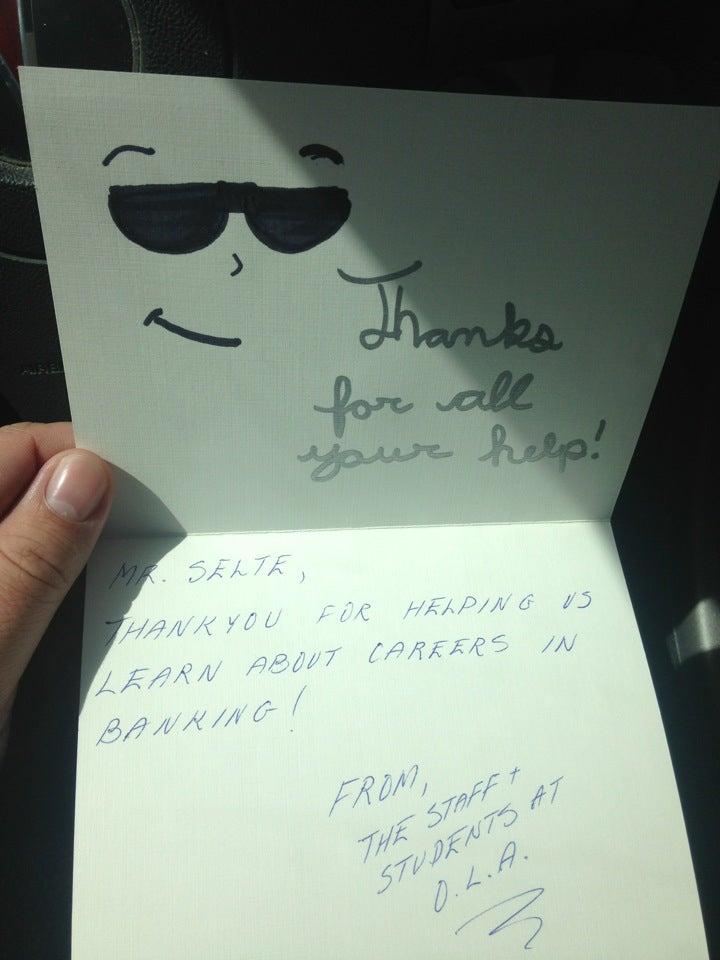 Thanks
for all
your help!
MR. SELTE,
THANKYOU FOR HELPING US
LEARN ABOUT CAREERS IN
BANKING!
FROM,
THE STAFF +
STUDENTS AT
O.L.A.